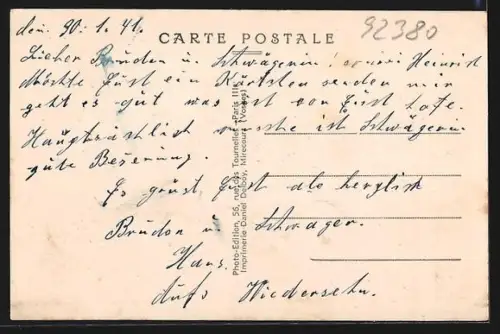 den 90. 1. 41.
92380
CARTE POSTALE
Lieber Bruder u. Schwägerin! Heinrich
Möchte Euch ein Kärtchen senden mir
geht es gut was ich von Euch hoffe.
Hauptsächlich wünsche ich Schwägerin
gute Beßerung.
Es grüst Euch als herzlich
Bruder u. Schwager.
Hans.
Aufs Wiedersehn.
Photo-Edition, 56, rue des Tournelles - Paris IIIe
Imprimerie Daniel Delboy, Mirecourt (Vosges)